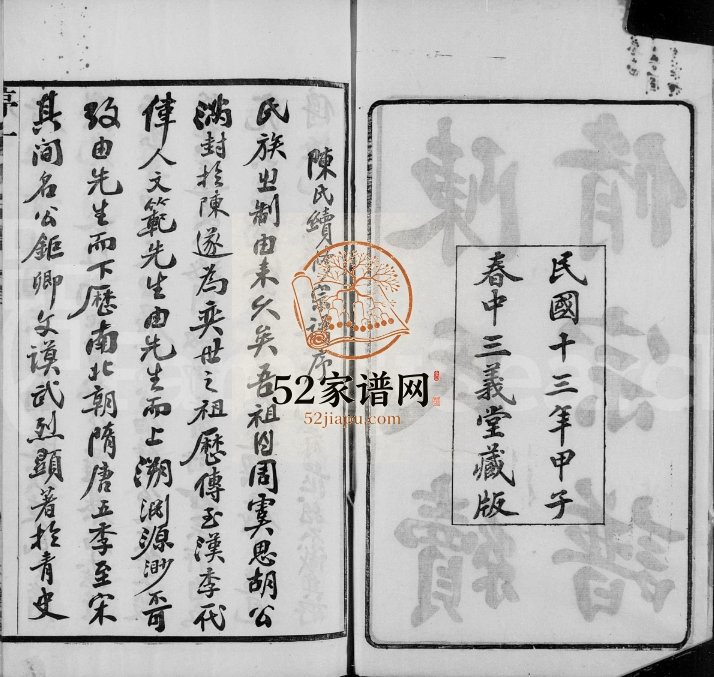 民國十三年甲子
春中三義堂藏版
陳氏續修宗譜序
氏族之制由来久矣吾祖自周虞思胡公
滿封於陳遂為奕世之祖歷傳至漢季代
偉人文範先生由先生而上溯淵源渺不可
攷由先生而下歷南北朝隋唐五季至宋
其间名公鉅卿文謨武烈顯著於青史
序一
52家谱网
52jiapu.com